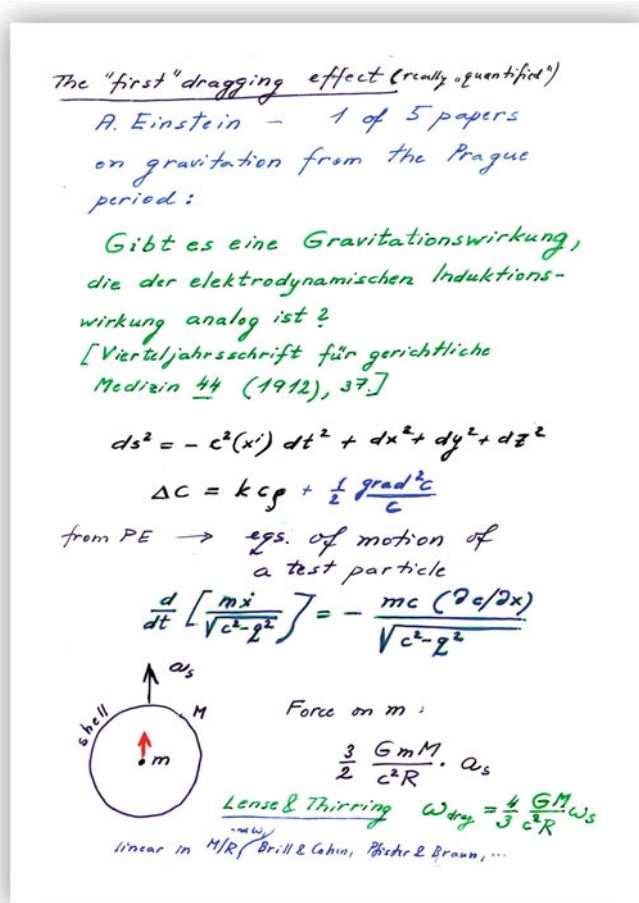 The "first" dragging effect (really „quantified")
A. Einstein – 1 of 5 papers
on gravitation from the Prague
period:
Gibt es eine Gravitationswirkung,
die der elektrodynamischen Induktions-
wirkung analog ist?
[Vierteljahrsschrift für gerichtliche
Medizin 44 (1912), 37.]
ds² = − c²(xⁱ) dt² + dx² + dy² + dz²
Δc = kcρ + ½ grad²c / c
from PE → eqs. of motion of
a test particle
d/dt [mẋ / √(c²−q²)] = − mc (∂c/∂x) / √(c²−q²)
aₛ
shell
M
m
Force on m:
3/2 GmM/c²R · aₛ
Lense & Thirring ω_drag = 4/3 GM/c²R ωₛ
and ωₛ
linear in M/R, Brill & Cohen, Pfister & Braun, ...